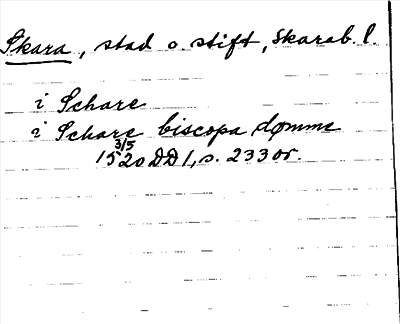 Skara, stad o stift, Skarab. l.
i Schare
i Schare biscopa dømme
3/5
1520 DD 1, s. 233 or.